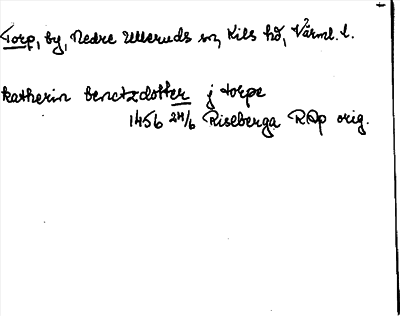 Torp, by, Nedre Ulleruds sn, Kils hd, Värml. l.
katherin benctzdotter j torpe
1456 24/6 Riseberga RAp orig.